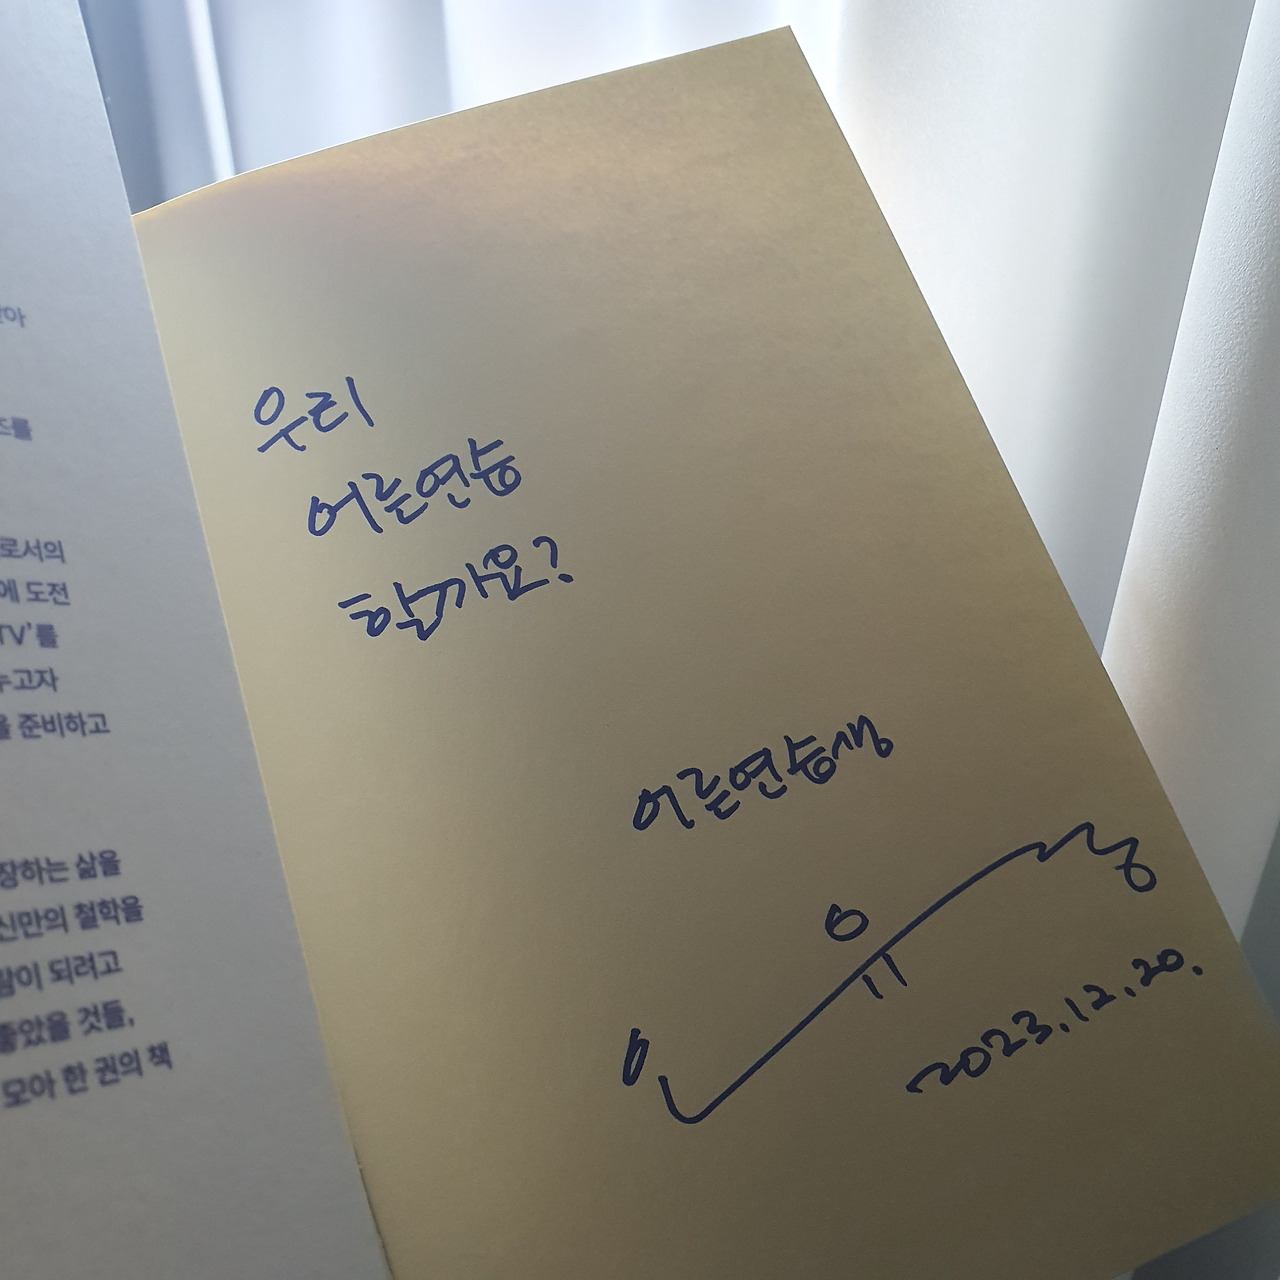 로서의
에 도전
TV'를
누고자
을 준비하고
장하는 삶을
신만의 철학을
람이 되려고
좋았을 것들,
모아 한 권의 책
우리
어른연습
할까요?
어른연습생
2023.12.20.